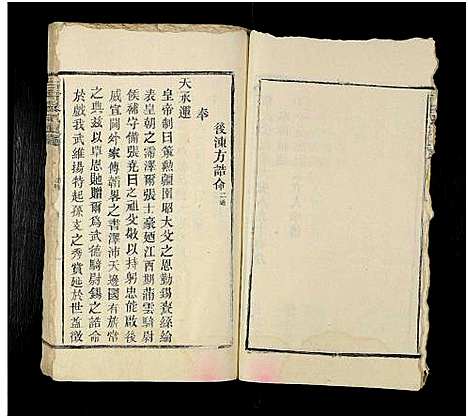 後涷方誥命二道
奉
天承運
皇帝制曰策勲疆圉昭大父之恩勤錫賚絲綸
表皇朝之霈澤爾張士豪廼江西期蒲雲騎尉
候補守備張堯日之祖父敬以持躬忠能啟後
威宣閫外家傳韜畧之書澤沛天邊國有旂常
之典兹以覃恩貤贈爾為武德騎尉錫之誥命
於戲我武維揚特起孫支之秀賞延於世益徵